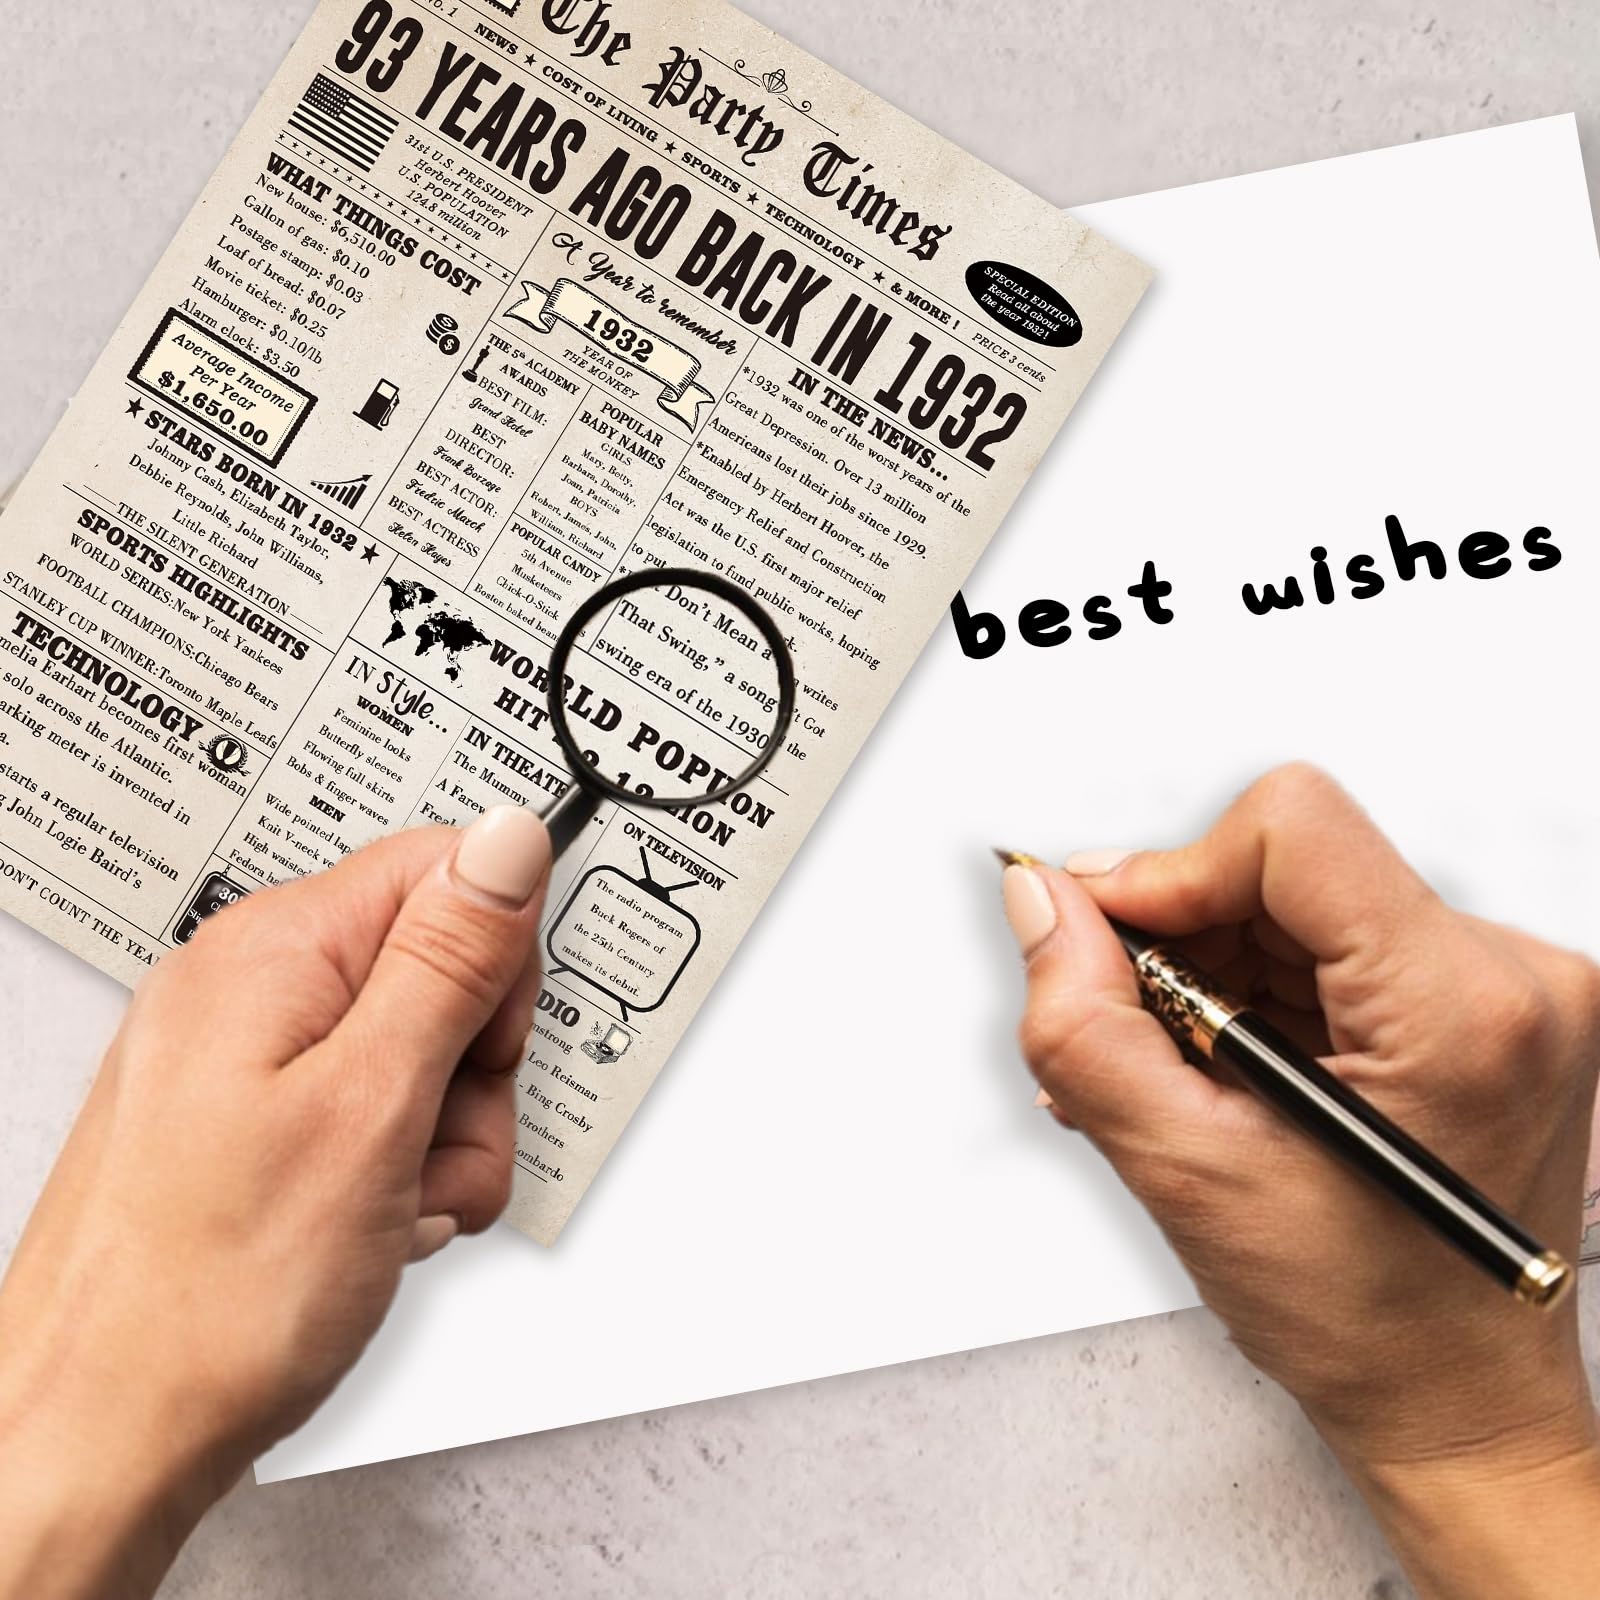 No. 1
The Party Times
NEWS ★ COST OF LIVING ★ SPORTS ★ TECHNOLOGY ★ & MORE !
PRICE 3 cents
SPECIAL EDITION
Read all about
the year 1932!
93 YEARS AGO BACK IN 1932
31st U.S. PRESIDENT
Herbert Hoover
U.S. POPULATION
124.8 million
WHAT THINGS COST
New house: $6,510.00
Gallon of gas: $0.10
Postage stamp: $0.03
Loaf of bread: $0.07
Movie ticket: $0.25
Hamburger: $0.10/lb
Alarm clock: $3.50
Average Income
Per Year
$1,650.00
★ STARS BORN IN 1932 ★
Johnny Cash, Elizabeth Taylor,
Debbie Reynolds, John Williams,
Little Richard
THE SILENT GENERATION
SPORTS HIGHLIGHTS
WORLD SERIES:New York Yankees
FOOTBALL CHAMPIONS:Chicago Bears
STANLEY CUP WINNER:Toronto Maple Leafs
TECHNOLOGY
melia Earhart becomes first woman
solo across the Atlantic.
arking meter is invented in
a.
starts a regular television
g John Logie Baird's
DON'T COUNT THE YEA
A Year to remember
1932
YEAR OF
THE MONKEY
THE 5th ACADEMY
AWARDS
BEST FILM:
Grand Hotel
BEST
DIRECTOR:
Frank Borzage
BEST ACTOR:
Fredric March
BEST ACTRESS
Helen Hayes
POPULAR
BABY NAMES
GIRLS
Mary, Betty,
Barbara, Dorothy,
Joan, Patricia
BOYS
Robert, James, John,
William, Richard
POPULAR CANDY
5th Avenue
Musketeers
Chick-O-Stick
Boston baked bean
IN THE NEWS...
*1932 was one of the worst years of the
Great Depression. Over 13 million
Americans lost their jobs since 1929.
*Enabled by Herbert Hoover, the
Emergency Relief and Construction
Act was the U.S. first major relief
legislation to fund public works, hoping
to put
rk.
Don't Mean a
That Swing," a song
swing era of the 1930
writes
't Got
the
WORLD POPU ION
HIT 2 12 LION
IN Style...
WOMEN
Feminine looks
Butterfly sleeves
Flowing full skirts
Bobs & finger waves
MEN
Wide pointed lape
Knit V-neck ve
High waisted
Fedora ha
30
IN THEATE ...
The Mummy
A Farew
Frea
ON TELEVISION
The radio program
Buck Rogers of
the 25th Century
makes its debut.
DIO
mstrong
Leo Reisman
- Bing Crosby
Brothers
Lombardo
best wishes